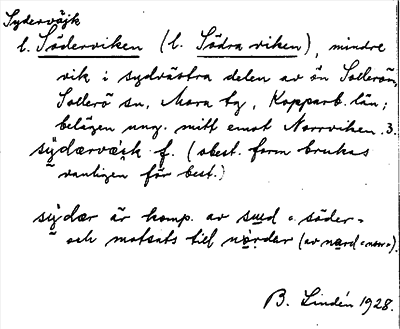 Syderväjk
l. Söderviken (l. Södra viken), mindre
vik i sydvästra delen av ön Sollerön,
Sollerö sn, Mora tg, Kopparb. län;
belägen ung. mitt emot Norrviken. 3.
sỳdærvæ̀ik f. (obest. form brukas
vanligen för best.)
sỳdær är komp. av su̲d „söder„
och motsats till nö̀rdær (av nærd „norr„).
B. Lindén 1928.